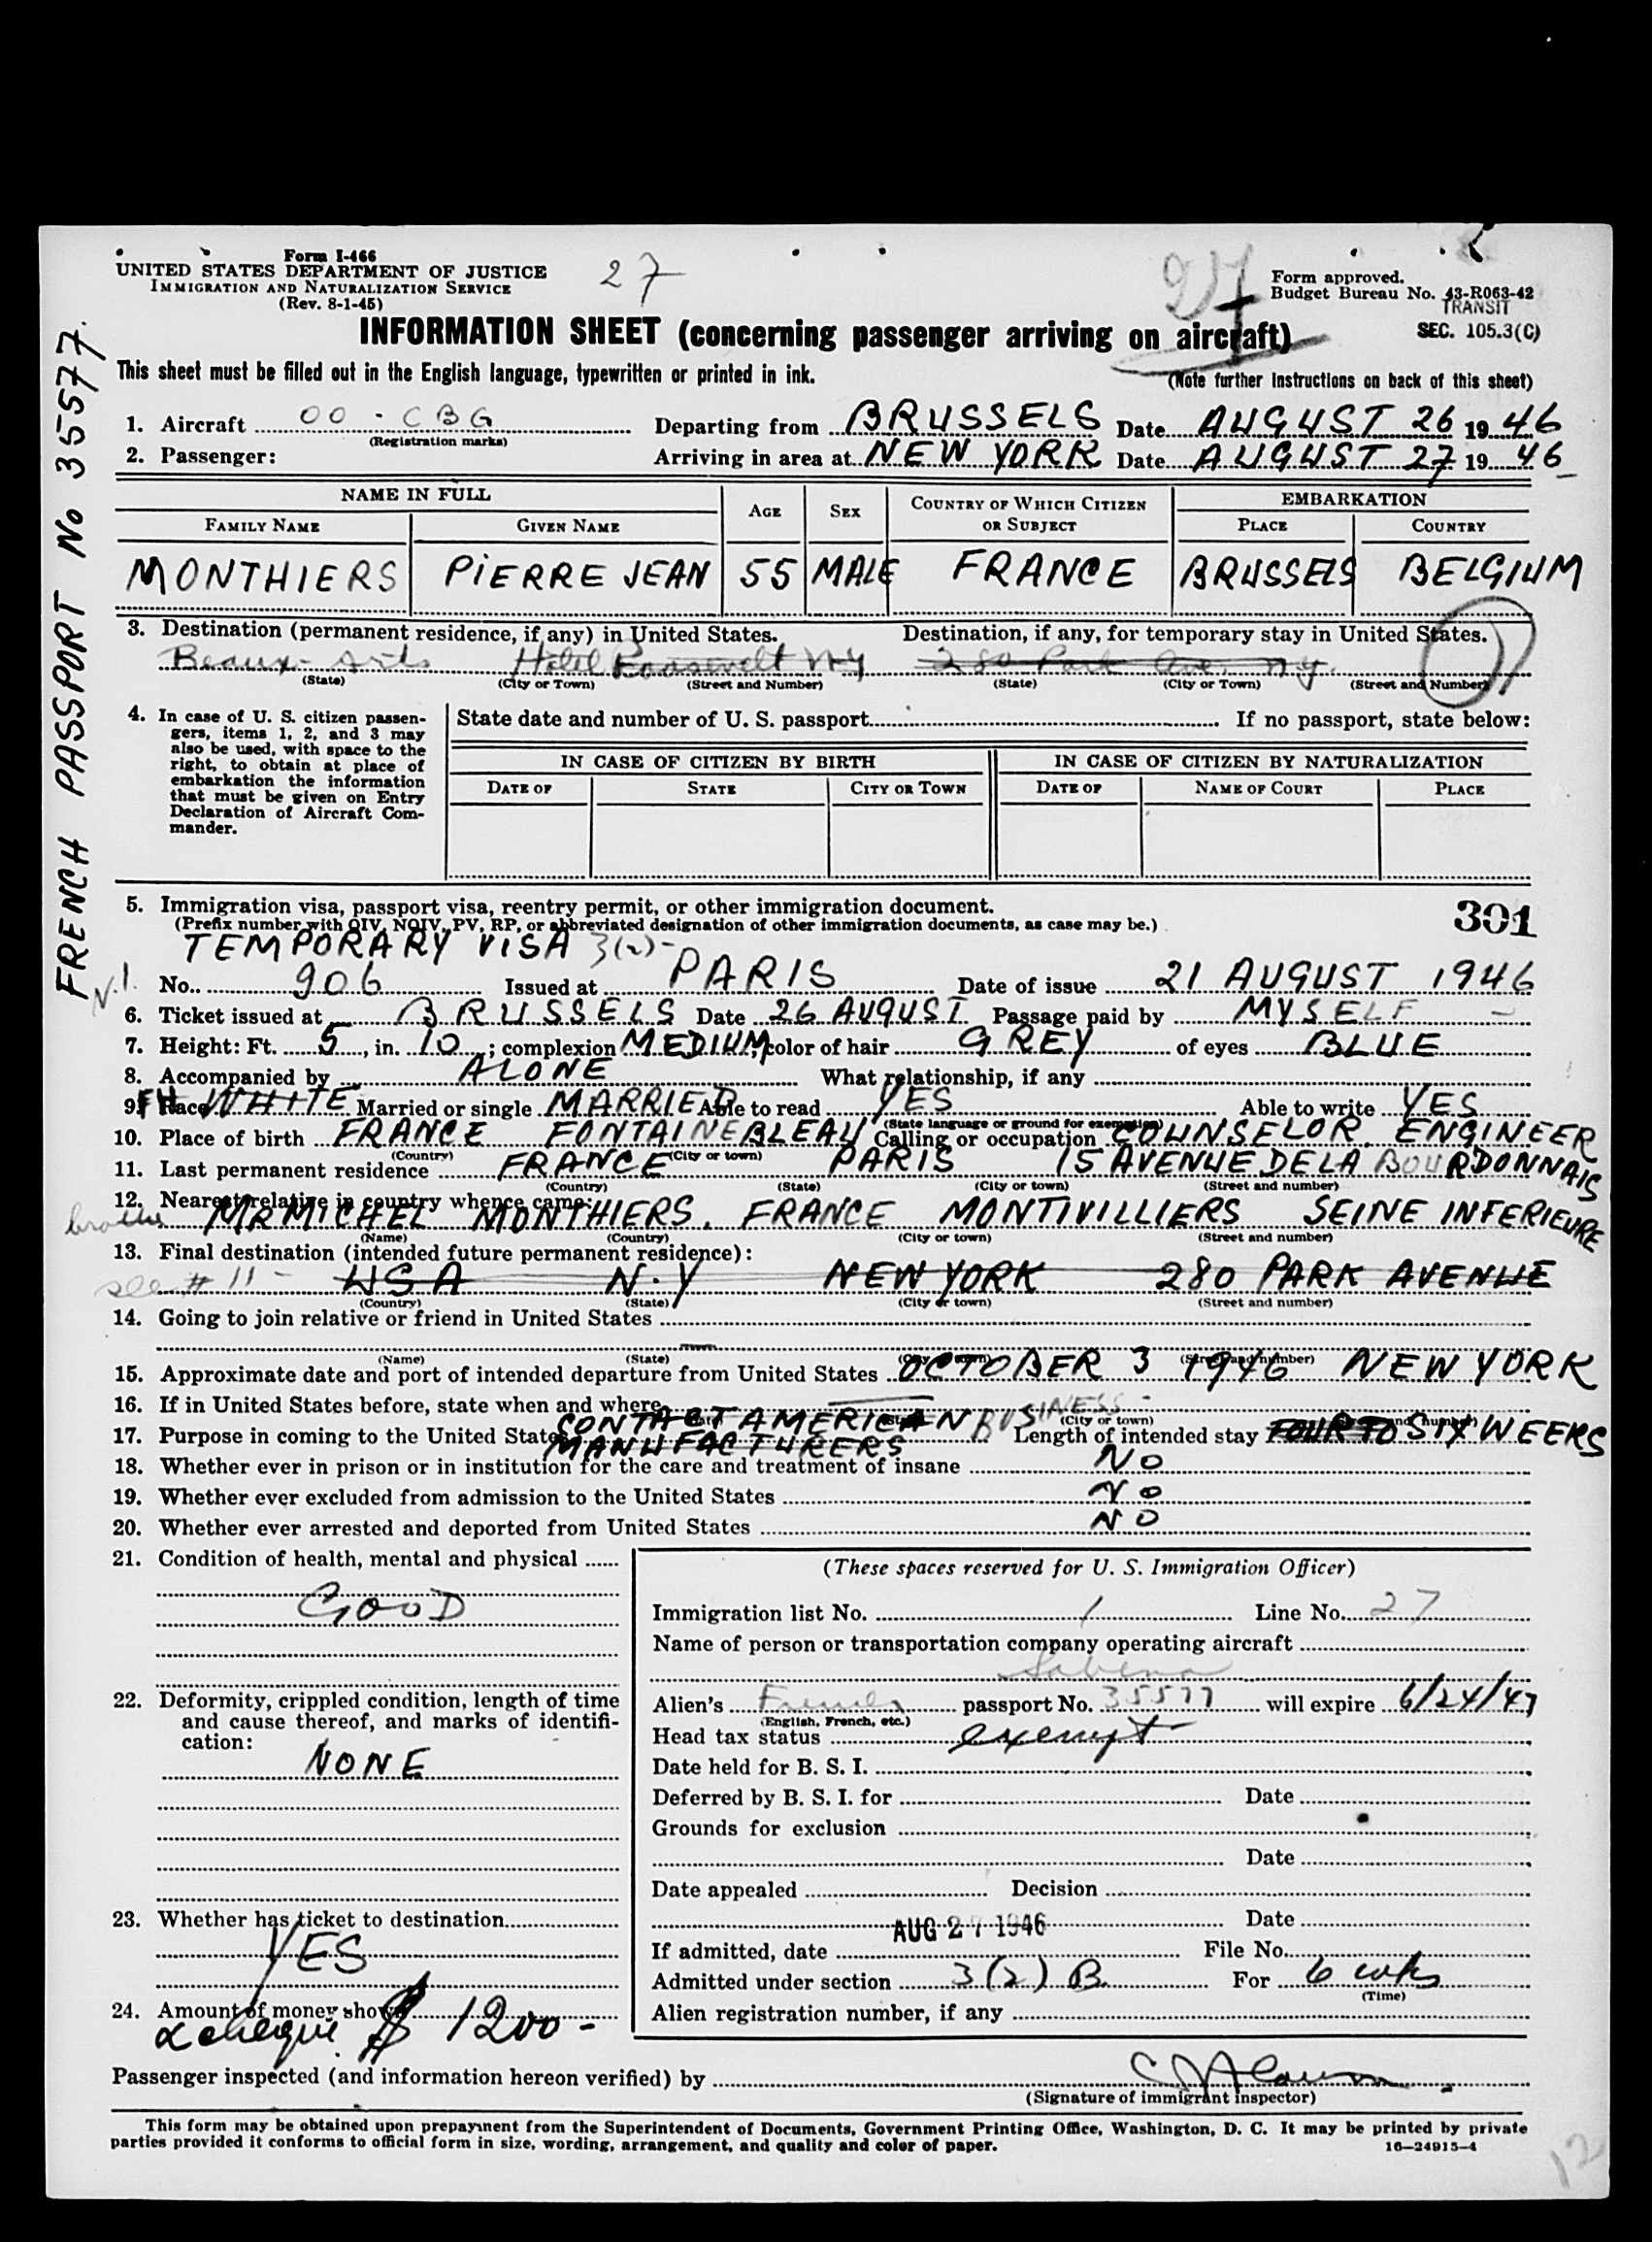 Form I-466
UNITED STATES DEPARTMENT OF JUSTICE
IMMIGRATION AND NATURALIZATION SERVICE
(Rev. 8-1-45)
27
27
Form approved.
Budget Bureau No. 43-R063-42
TRANSIT
SEC. 105.3(C)
INFORMATION SHEET (concerning passenger arriving on aircraft)
This sheet must be filled out in the English language, typewritten or printed in ink.
(Note further instructions on back of this sheet)
FRENCH PASSPORT No 35577.
1. Aircraft OO - CBG Departing from BRUSSELS Date AUGUST 26 1946
(Registration marks)
2. Passenger: Arriving in area at NEW YORK Date AUGUST 27 1946
NAME IN FULL AGE SEX COUNTRY OF WHICH CITIZEN OR SUBJECT EMBARKATION
FAMILY NAME GIVEN NAME PLACE COUNTRY
MONTHIERS PIERRE JEAN 55 MALE FRANCE BRUSSELS BELGIUM
3. Destination (permanent residence, if any) in United States. Destination, if any, for temporary stay in United States.
Beaux-Arts Hotel Roosevelt NY 280 Park Ave. N.Y.
(State) (City or Town) (Street and Number) (State) (City or Town) (Street and Number)
4. In case of U. S. citizen passen-
gers, items 1, 2, and 3 may
also be used, with space to the
right, to obtain at place of
embarkation the information
that must be given on Entry
Declaration of Aircraft Com-
mander.
State date and number of U. S. passport If no passport, state below:
IN CASE OF CITIZEN BY BIRTH IN CASE OF CITIZEN BY NATURALIZATION
DATE OF STATE CITY OR TOWN DATE OF NAME OF COURT PLACE
5. Immigration visa, passport visa, reentry permit, or other immigration document.
301
(Prefix number with QIV, NQIV, PV, RP, or abbreviated designation of other immigration documents, as case may be.)
TEMPORARY VISA 3(2)-
N.I. No. 906 Issued at PARIS Date of issue 21 AUGUST 1946
6. Ticket issued at BRUSSELS Date 26 AUGUST Passage paid by MYSELF
7. Height: Ft. 5, in. 10; complexion MEDIUM; color of hair GREY of eyes BLUE
8. Accompanied by ALONE What relationship, if any
9. FH Race WHITE Married or single MARRIED Able to read YES Able to write YES
(State language or ground for exemption)
10. Place of birth FRANCE FONTAINEBLEAU Calling or occupation COUNSELOR. ENGINEER
(Country) (City or town)
11. Last permanent residence FRANCE PARIS 15 AVENUE DE LA BOURDONNAIS
(Country) (State) (City or town) (Street and number)
12. Nearest relative in country whence came:
brother MR MICHEL MONTHIERS. FRANCE MONTIVILLIERS SEINE INFERIEURE
(Name) (Country) (City or town) (Street and number)
13. Final destination (intended future permanent residence):
see # 11 - USA N.Y NEW YORK 280 PARK AVENUE
(Country) (State) (City or town) (Street and number)
14. Going to join relative or friend in United States
(Name) (State) (City or town) (Street and number)
15. Approximate date and port of intended departure from United States OCTOBER 3 1946 NEW YORK
16. If in United States before, state when and where
(Date) (State) (City or town) (Street and number)
17. Purpose in coming to the United States CONTACT AMERICAN BUSINESS - MANUFACTURERS Length of intended stay FOUR TO SIX WEEKS
18. Whether ever in prison or in institution for the care and treatment of insane NO
19. Whether ever excluded from admission to the United States NO
20. Whether ever arrested and deported from United States NO
21. Condition of health, mental and physical
GOOD
22. Deformity, crippled condition, length of time
and cause thereof, and marks of identifi-
cation:
NONE
23. Whether has ticket to destination
YES
24. Amount of money shown
cheque $ 1200-
(These spaces reserved for U. S. Immigration Officer)
Immigration list No. 1 Line No. 27
Name of person or transportation company operating aircraft
Sabena
Alien's French passport No. 35577 will expire 6/24/47
(English, French, etc.)
Head tax status exempt
Date held for B. S. I.
Deferred by B. S. I. for Date
Grounds for exclusion
Date
Date appealed Decision
Date
AUG 27 1946
If admitted, date File No.
Admitted under section 3(2) B. For 6 wks
(Time)
Alien registration number, if any
Passenger inspected (and information hereon verified) by
(Signature of immigrant inspector)
This form may be obtained upon prepayment from the Superintendent of Documents, Government Printing Office, Washington, D. C. It may be printed by private
parties provided it conforms to official form in size, wording, arrangement, and quality and color of paper. 16—24915-4
12